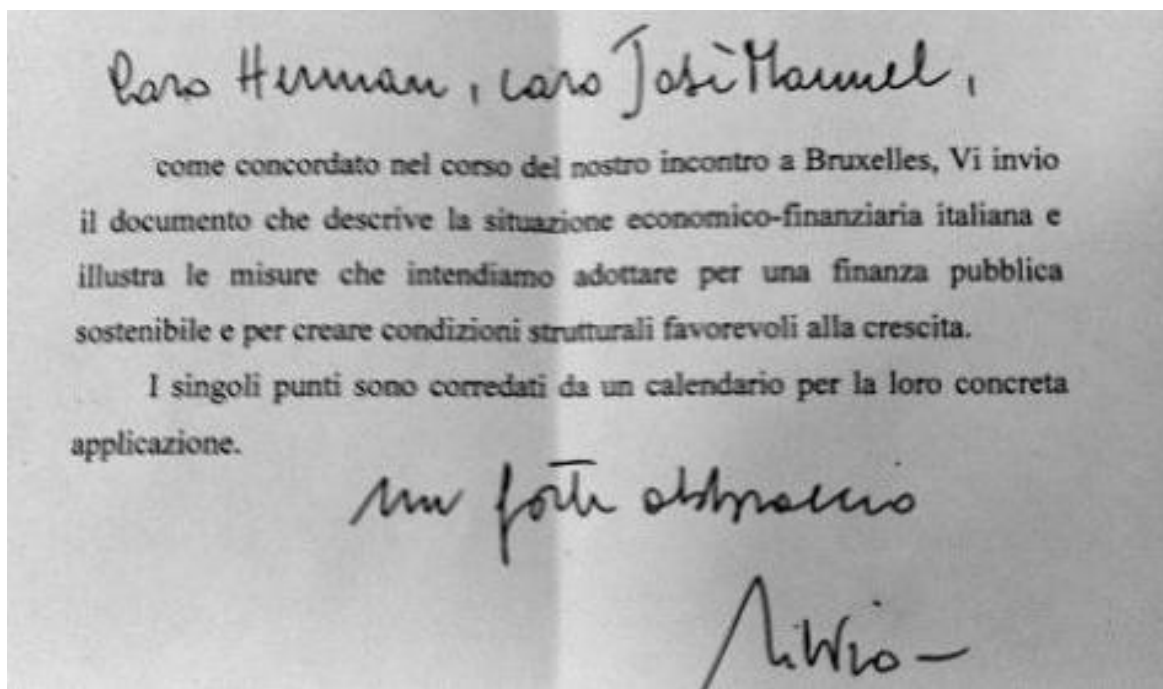 Caro Herman, caro José Manuel,
come concordato nel corso del nostro incontro a Bruxelles, Vi invio
il documento che descrive la situazione economico-finanziaria italiana e
illustra le misure che intendiamo adottare per una finanza pubblica
sostenibile e per creare condizioni strutturali favorevoli alla crescita.
I singoli punti sono corredati da un calendario per la loro concreta
applicazione.
un forte abbraccio
Silvio